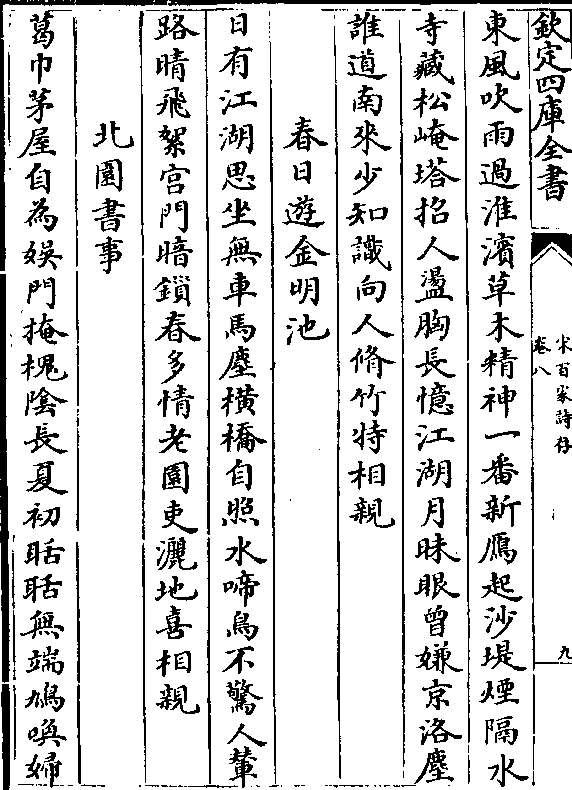 欽定四庫全書
宋百家詩存
卷八
九
東風吹雨過淮濱草木精神一番新鴈起沙堤煙隔水
寺藏松崦塔招人盪胸長憶江湖月昧眼曾嫌京洛塵
誰道南來少知識向人脩竹特相親
春日遊金明池
日有江湖思坐無車馬塵橫橋自照水啼鳥不驚人輦
路晴飛絮宮門暗鎖春多情老園吏灑地喜相親
北園書事
葛巾茅屋自為娱門掩槐陰長夏初聒聒無端鳩喚婦